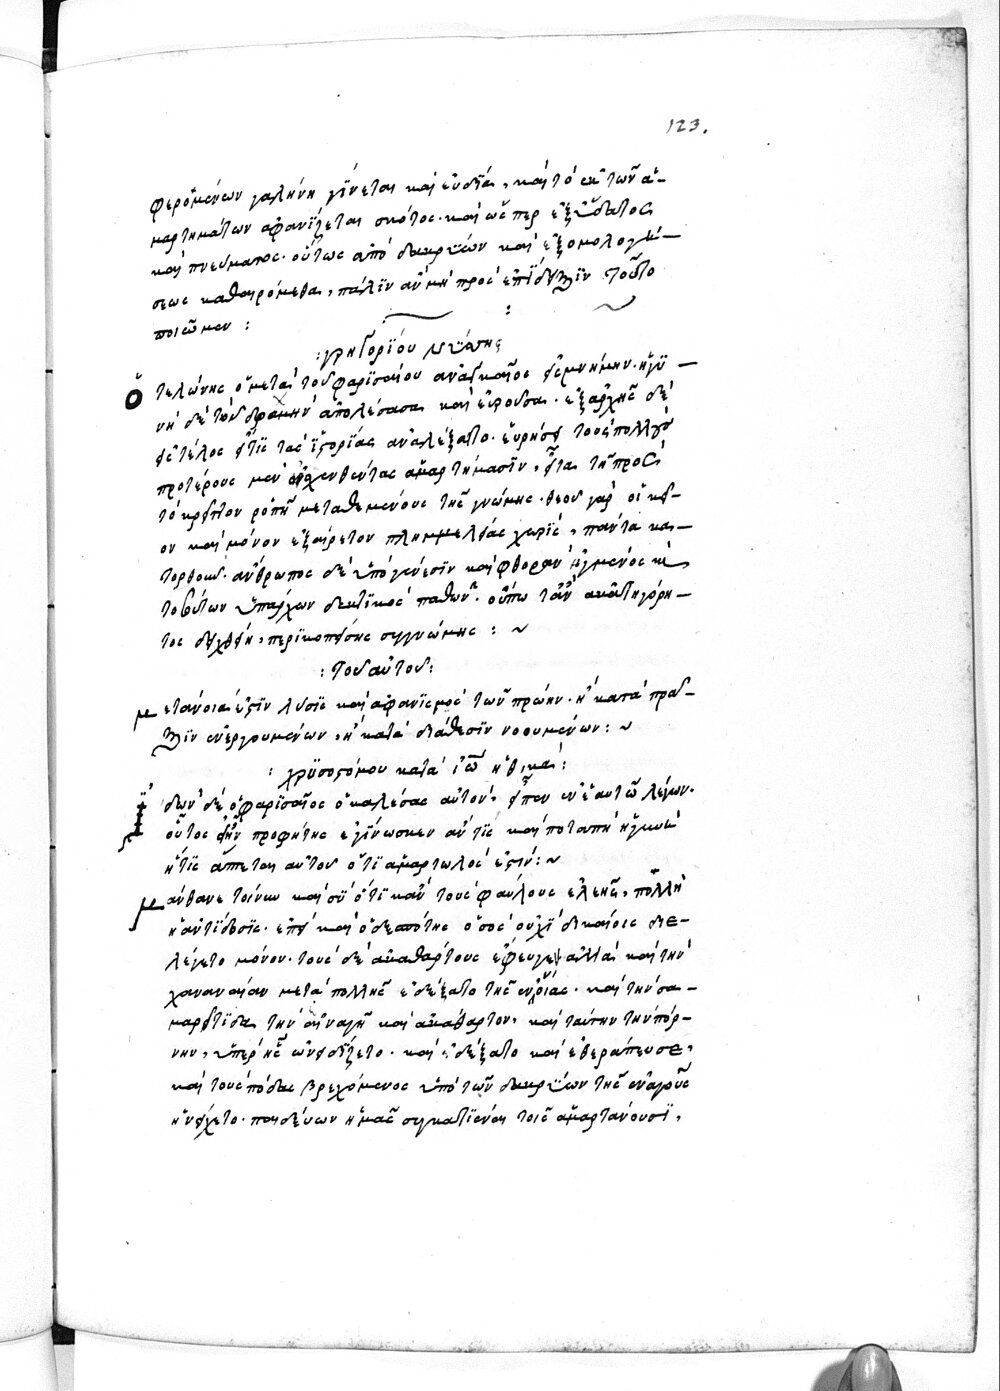 123.
φερομένων γαλήνη γίνεται καὶ εὐδία, καὶ τὸ ἐκ τῶν ἁ-
μαρτημάτων ἀφανίζεται σκότος· καὶ ὥσπερ ἐξ ὕδατος
καὶ πνεύματος· οὕτως ἀπὸ δακρύων καὶ ἐξομολογή-
σεως καθαιρόμεθα, πάλιν ἂν μὴ πρὸς ἐπίδειξιν τοῦτο
ποιῶμεν :
: γρηγορίου νύσης
Ὁ τελώνης ὁ μετὰ τοῦ φαρισαίου ἀναγκαῖος εἰς μνήμην· ἡ γυ-
νὴ δὲ τὴν δραχμὴν ἀπολέσασα καὶ εὑροῦσα· ἐξαρχῆς δὲ
εἰς τέλος εἴ τις τὰς ἱστορίας ἀναλέξαιτο· εὑρήσει τοὺς πολλοὺς
προτέρους μὲν ἐνσχεθέντας ἁμαρτήμασιν, εἶτα τῇ πρὸς
τὸ κρεῖττον ῥοπῇ μεταθεμένους τῆς γνώμης· θεοῦ γὰρ οἰκεῖ-
ον καὶ μόνον ἐξαίρετον πλημμελείας χωρὶς, πάντα κα-
τορθοῦν· ἄνθρωπος δὲ ὑπὸ γένεσιν καὶ φθορὰν ἠγμένος κὶ
τούτων ὑπάρχων δεκτικὸς παθῶν· οὔπω τἂν ἀκατηγόρη-
τος εὑρεθείη, περικοπείσης συγγνώμης : ~
: τοῦ αὐτοῦ :
μετάνοια ἐστὶν λύσις καὶ ἀφανισμὸς τῶν πρώην· ἢ κατὰ πρᾶ-
ξιν ἐνεργουμένων, ἢ κατὰ διάθεσιν νοουμένων : ~
: χρυσοστόμου κατὰ ἰῶ ἠθικά :
Ἰδὼν δὲ ὁ φαρισαῖος ὁ καλέσας αὐτὸν, εἶπεν ἐν ἑαυτῷ λέγων·
οὗτος εἰ ἦν προφήτης ἐγίνωσκεν ἂν τίς καὶ ποταπὴ ἡ γυνὴ
ἥτις ἅπτεται αὐτοῦ ὅτι ἁμαρτωλός ἐστιν : ~
μάνθανε τοίνυν καὶ σὺ ὅτι κἂν τοὺς φαύλους ἐλεῇς, πολλὴ
ἡ ἀντίδοσις· ἐπεὶ καὶ ὁ δεσπότης ὁ σὸς οὐχὶ δικαίοις διε-
λέγετο μόνον· τοὺς δὲ ἀκαθάρτους ἔφευγε ἀλλὰ καὶ τὴν
χαναναίαν μετὰ πολλῆς ἐδέξατο τῆς εὐνοίας· καὶ τὴν σα-
μαρεῖτιδα τὴν ἐναγῆ καὶ ἀκάθαρτον, καὶ ταύτην τὴν πόρ-
νην, ὑπὲρ ἧς ὠνειδίζετο· καὶ ἐδέξατο καὶ ἐθεράπευσε,
καὶ τοὺς πόδας βρεχόμενος ὑπὸ τῶν δακρύων τῆς ἐναγοῦς
ἠνείχετο· παιδεύων ἡμᾶς συγκατιέναι τοῖς ἁμαρτάνουσι,